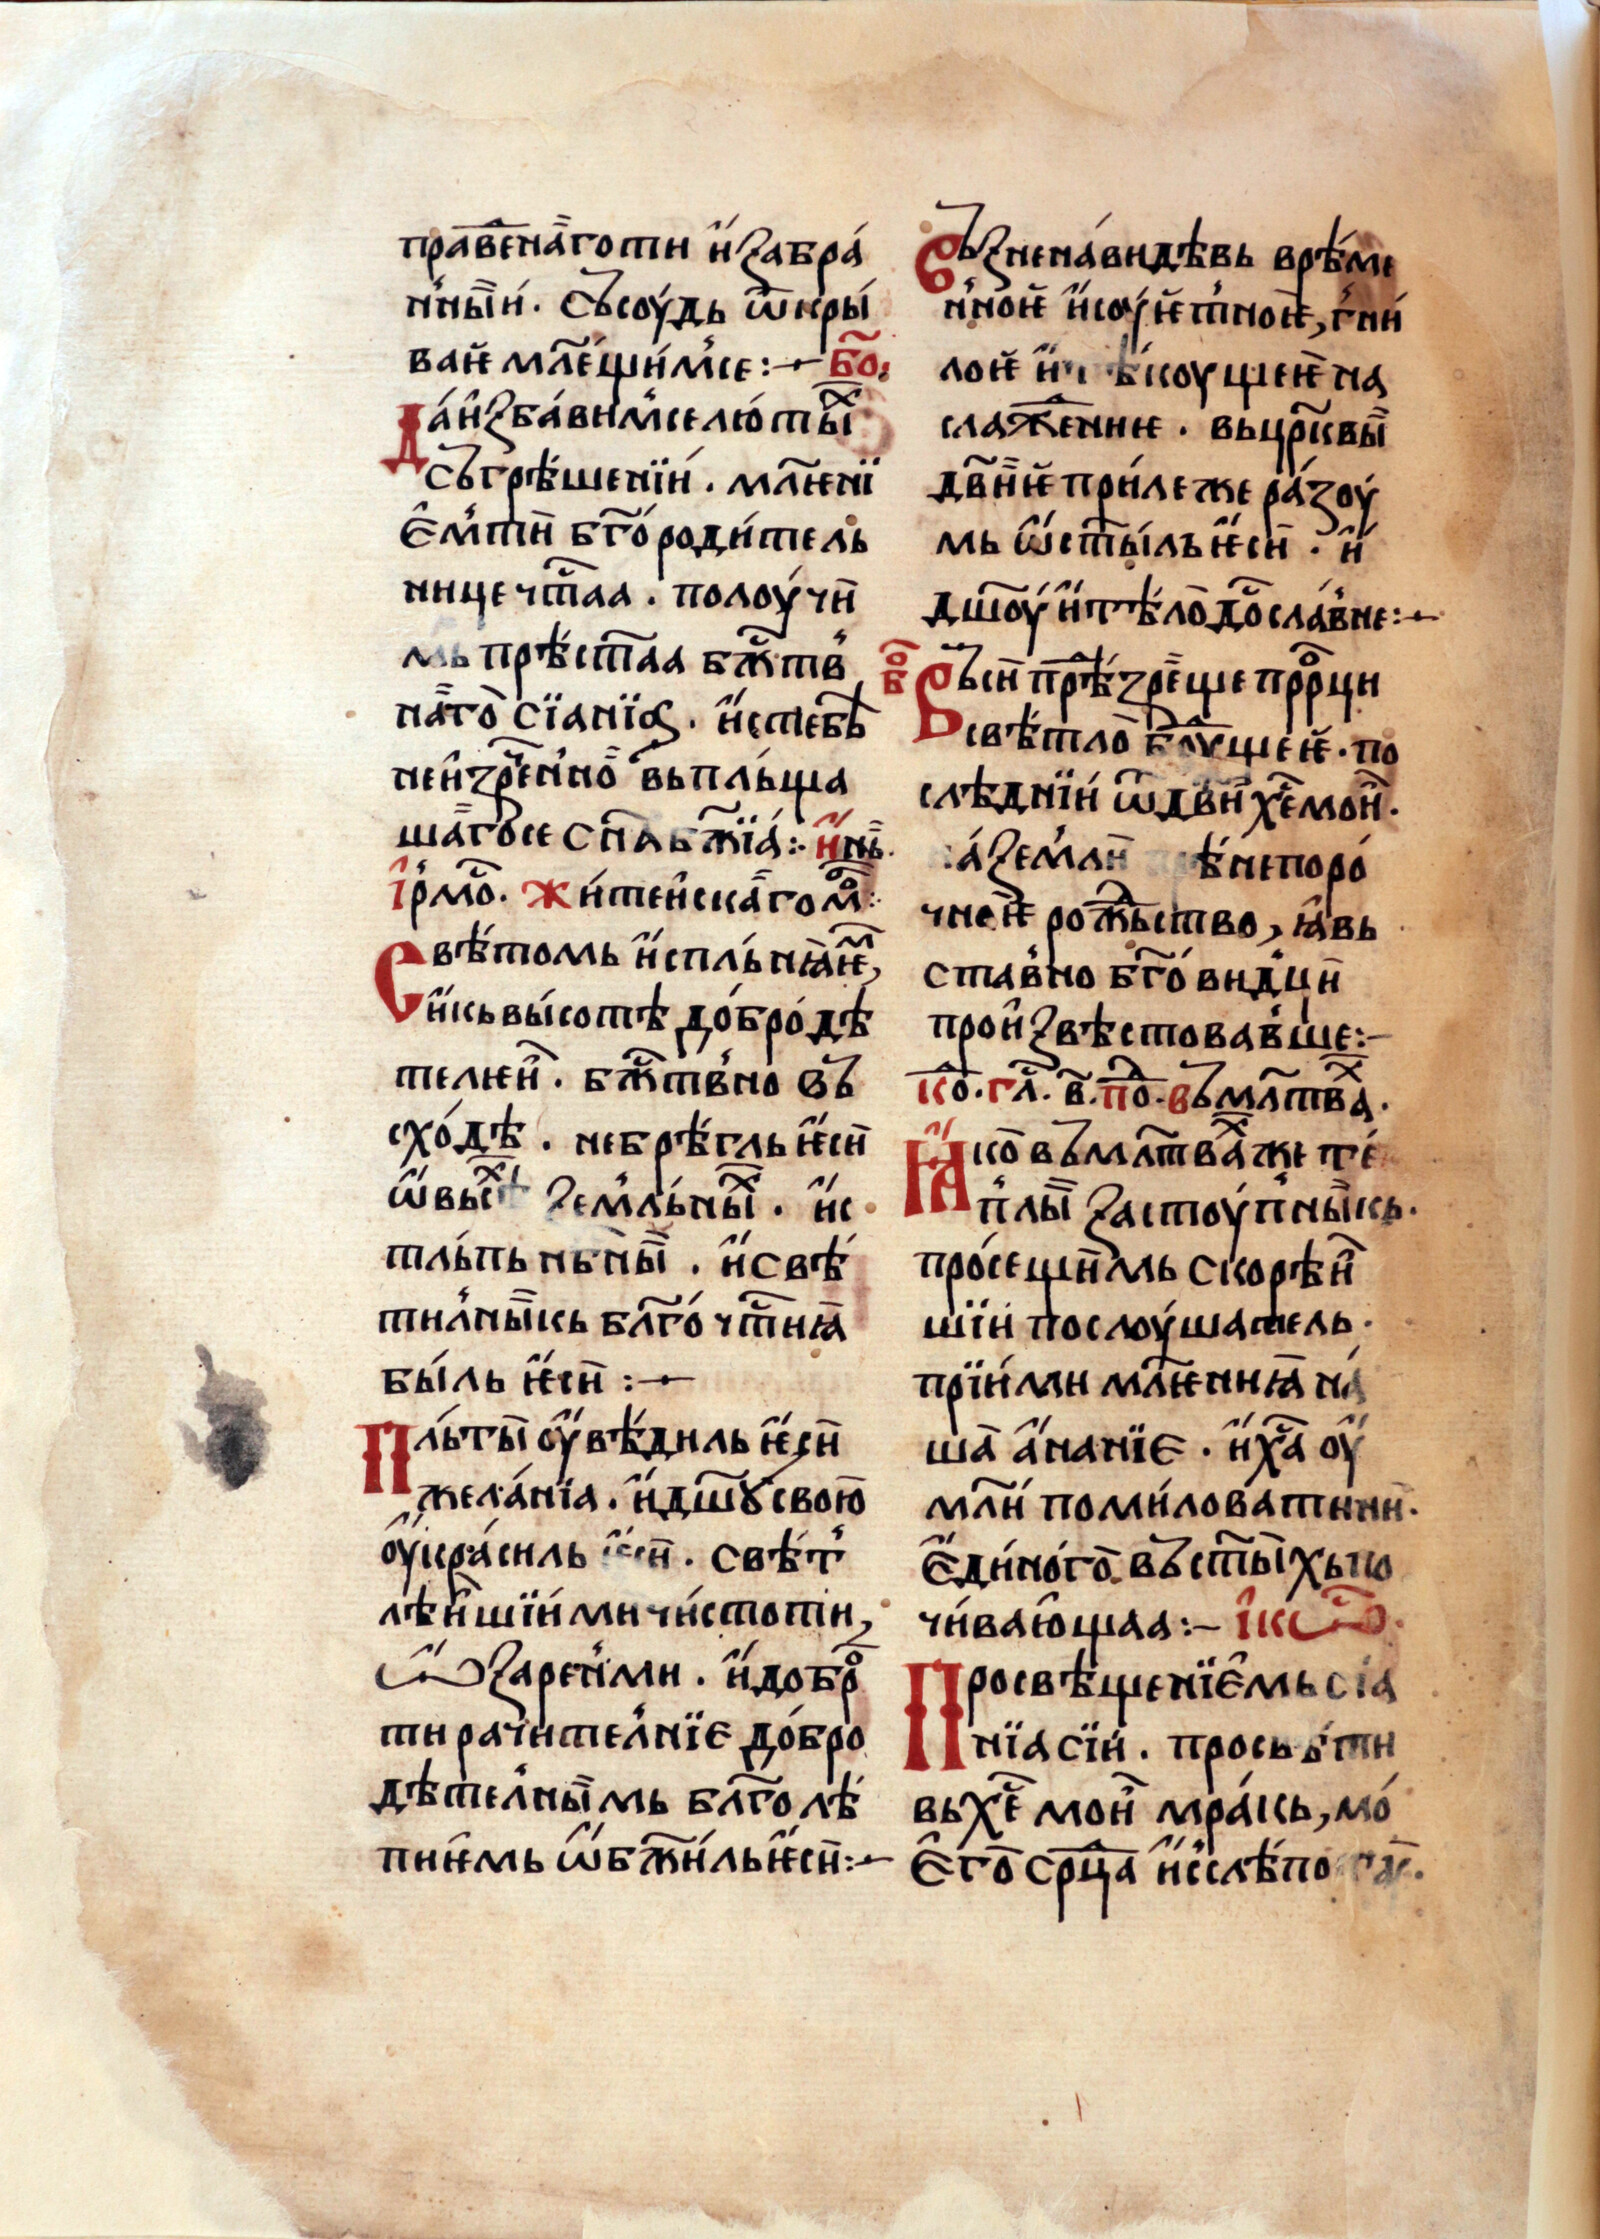 праве̑на̑готи и҆́забра́
н꙽ны̏и́. съсоу́дь ѿкры́
вае҆ мл҃е́щи́м꙽се:~ бо҃.
Да́и҆зба́вим꙽се лю́ты̏х
съгрѣ́шенїи́. мл҃ѥнї
Є҆м꙽ти̏ бг҃оро́ди́тель
нице чт҃аа. полоу́чи̏
мь прѣ́ст҃аа бж҃тв꙽
на̏го̀ сїа́нїа. и҆́стебѣ̀
неи҆зре́н꙽но̏ вьпль́ща
ша̏госе сп҃а бж҃їа́:· и҆́нн҃ꙗ.
і҆рмо҃. жи́теи҆ска̏го мо҃:
Свѣ́томь и҆́спль́нꙗ́ѥм,
и҆́кь вы́сотѣ до́бро́дѣ
телѥи҆. бж҃тв꙽но въ
схо́дѣ. небрѣ́гль ѥ҆́си̏
ѡ҆́вьсѣ́х земль́ны̏х. и҆́с
тль́пь нь꙽ны̏. и҆́свѣ́
тил꙽ны̏кь бл҃го́чт҃иꙗ̀
бы́ль ѥ҆́си̏:~
Пль́ты̏ оу҆́вѣ́диль ѥ҆́си̏
жела́нїа. и҆́дш҃ꙋ свою̀
оу҆́кра́силь ѥ҆́си̏. свѣ́т꙽
лѣи҆шїи́ми чи́стоти,
ѡ҆́зарен꙽ми. и҆́добро҃
ти рачител꙽нїе до́бро
дѣтел꙽ны̏мь бл҃голѣ́
пиѥ҆мь ѡ҆́бж҃и́ль ѥ҆́си̏:~
Възнена́видѣвь врѣ́ме
н꙽ноѥ и҆́соу́ѥт꙽ноѥ, гни́
лоѥ и҆́т ѣ́коущеѥ на
слажде́ниѥ. вьцр҃квы̏
дв҃ни̏ѥ при́леже ра́зоу́
мь ѡ҆́ст҃ы́ль ѥ҆́си̏. и҆́
дш҃оу́ и҆́тѣ́ло̏ до҃сла́в꙽не:~
бо҃ Въси̏ прѣ́зре̏ще пр҃рци
свѣ́тло̏ боу́щеѥ. по
слѣ́днїи́ ѿдв҃и҆ хе҃ мои҆.
за́земли̏ ѣ́непоро́
чноѥ рождьство, ꙗ҆́вь
став꙽но бг҃о́вид꙽ци̏
прои҆звѣстовав꙽ше:~
ко҃. гл҃. в҃. по҃. въмл҃тва̏х.
ꙗ҆́ко̀ въмл҃тва̏х же те́
п꙽лы̏ застоу́п꙽ны̏кь.
про́сещи̏мь скорѣи҆
шїи́ послоу́шатель.
прїи́ми мл҃ѥниꙗ̀ на́
ша̀ а҆́нанїе. и҆́ха҃ оу҆́
мл҃и́ поми́лова́ти ни̏.
Є҆́ди́ного̀ въст҃ы̏хь по
чи́ваю҆щаа:~ і҆кѡ҃.
Просвѣ́щенїє҆мь сїа́
нїа сїи́. просьвѣ́ти
вьхе҃ мои҆ мра́кь, мо́
Є҆го̀ ср҃ца и҆́ѡслѣ́по